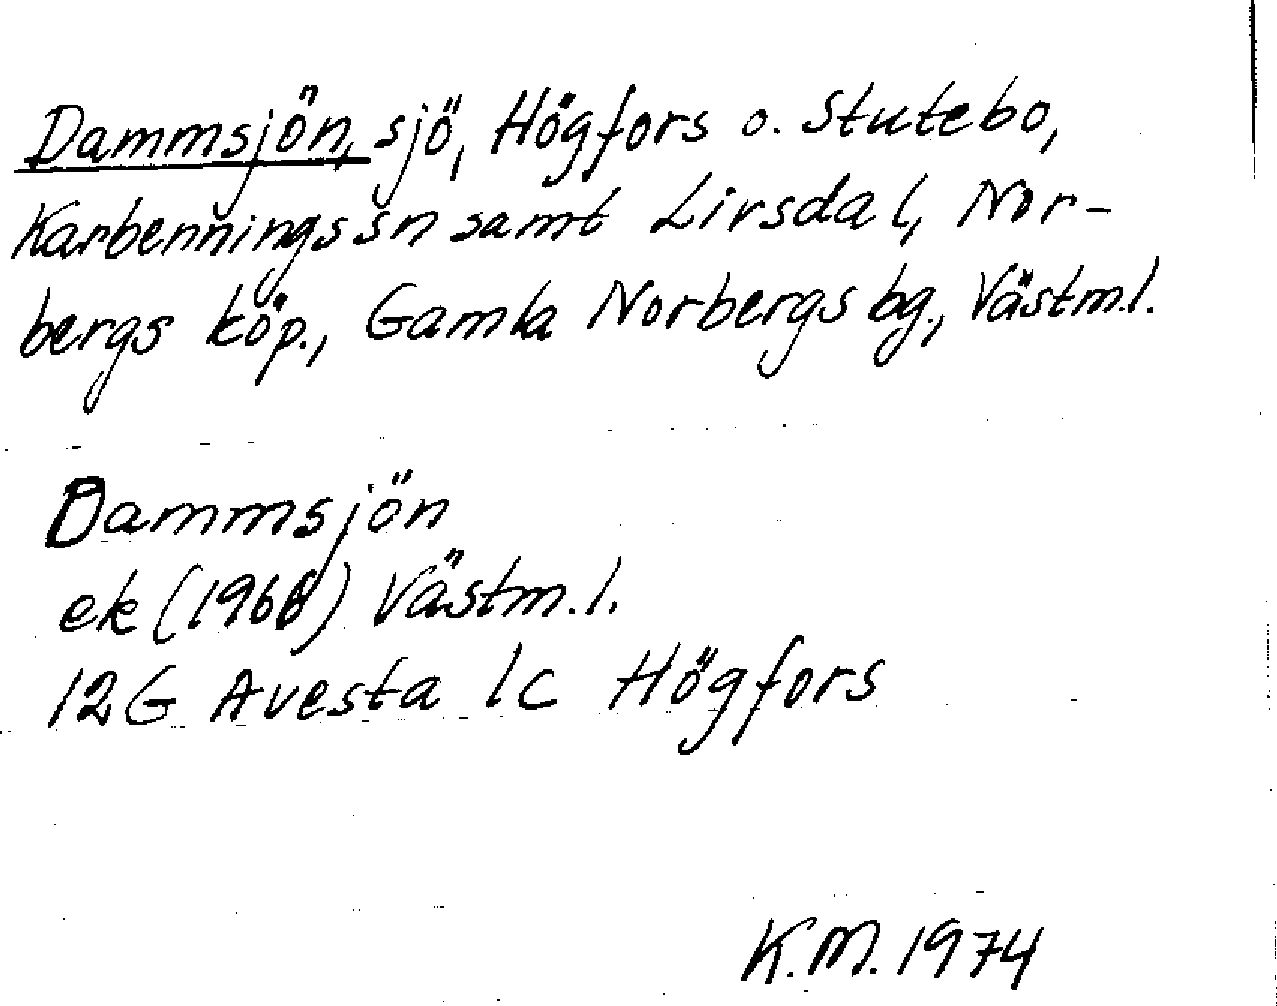 Dammsjön, sjö, Högfors o. Stutebo,
Karbennings sn samt Lirsdal, Nor-
bergs köp., Gamla Norbergs bg., Västm.l.
Dammsjön
ek (1966) Västm.l.
12G Avesta 1c Högfors
K.M. 1974